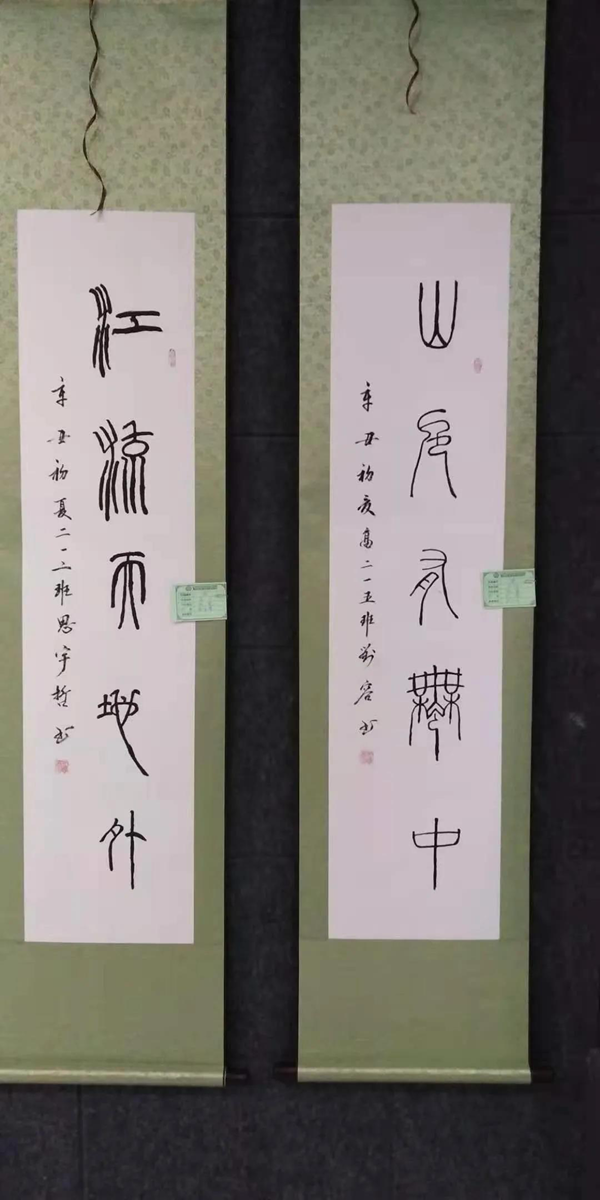 山色有無中
辛丑初夏高二一五班劉容书
江流天地外
辛丑初夏二一二班思宇哲书